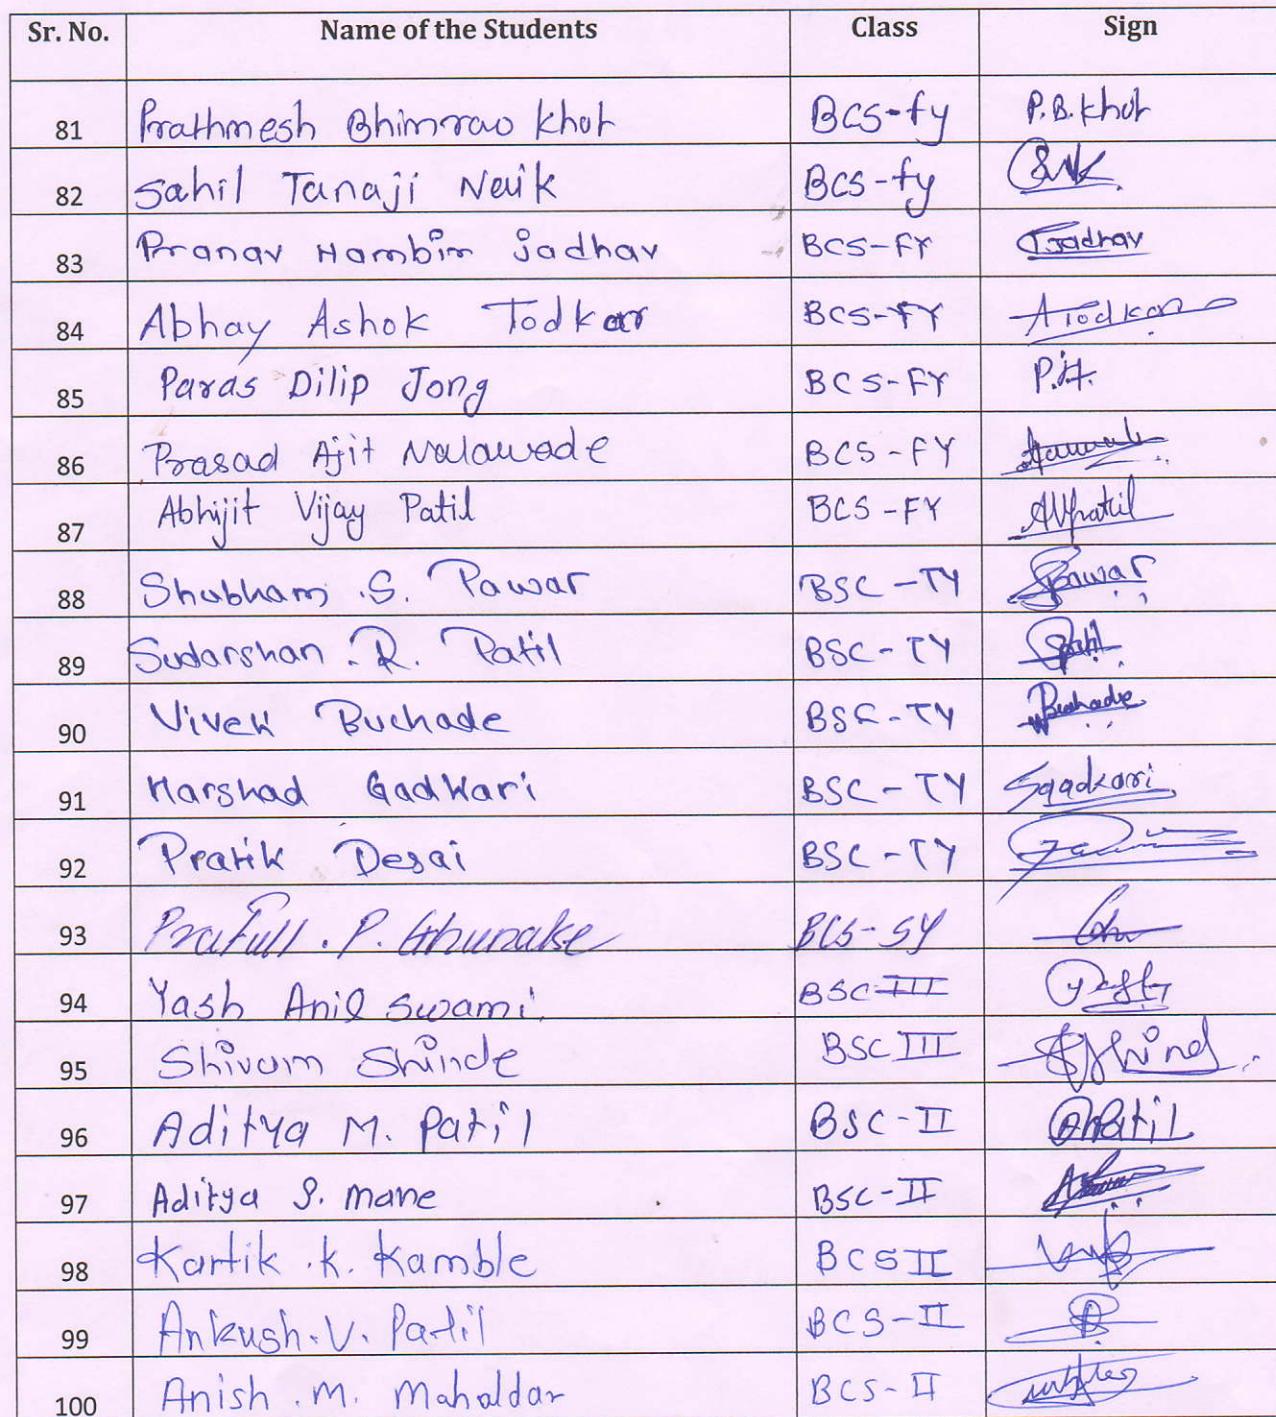 Sr. No. Name of the Students Class Sign
81 Prathmesh Bhimrao Khot BCS-fy P.B. Khot
82 Sahil Tanaji Naik BCS-fy
83 Pranav Hambir jadhav BCS-FY Jadhav
84 Abhay Ashok Todkar BCS-FY ATodkar
85 Paras Dilip Jong BCS-FY
86 Prasad Ajit Nalawade BCS-FY
87 Abhijit Vijay Patil BCS-FY AVPatil
88 Shubham .S. Pawar BSC-TY SPawar
89 Sudarshan .R. Patil BSC-TY
90 Vivek Buchade BSC-TY Buchade
91 Harshad Gadkari BSC-TY Sgadkari
92 Pratik Desai BSC-TY
93 Prafull . P. Ghunake BCS-SY
94 Yash Anil Swami. BSC-III
95 Shivam Shinde BSC III
96 Aditya M. Patil BSC-II
97 Aditya S. mane BSC-II
98 Kartik .K. Kamble BCS II
99 Ankush. V. Patil BCS-II
100 Anish . M. Mahaldar BCS-II